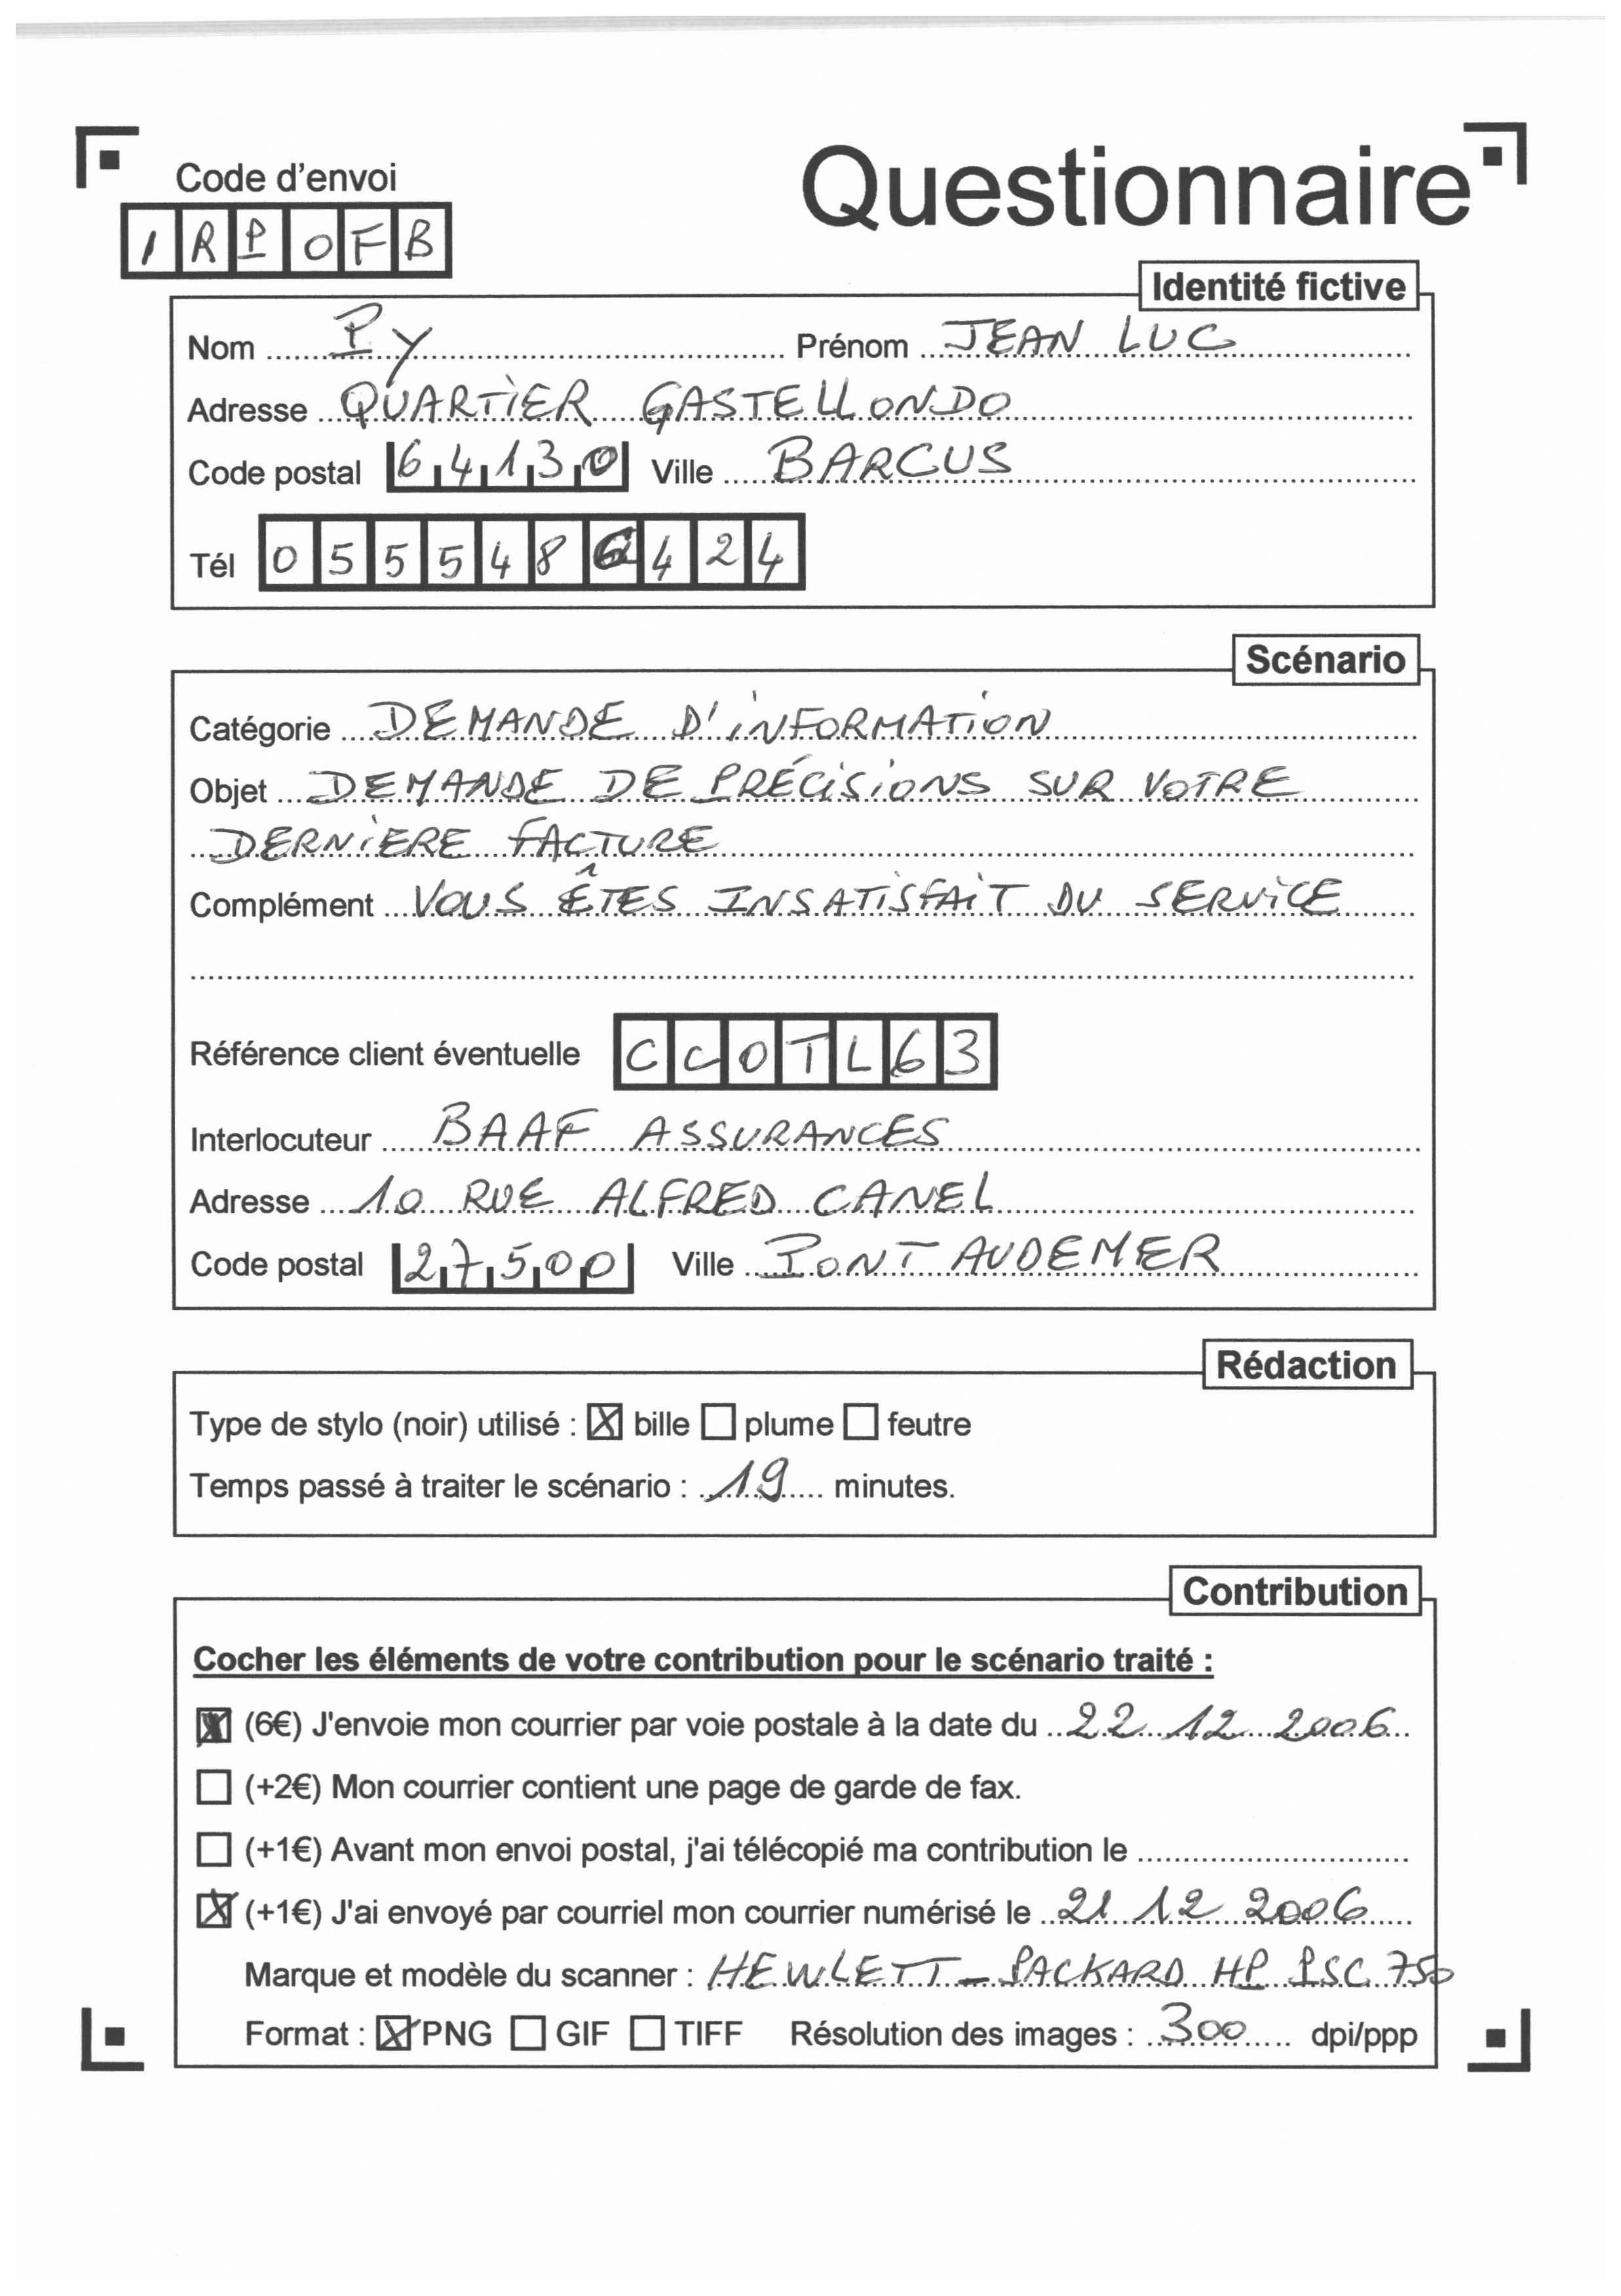 Code d'envoi
Questionnaire
1RPOFB
Identité fictive
Nom PY Prénom JEAN LUC
Adresse QUARTIER GASTELLONDO
Code postal 64130 Ville BARCUS
Tél 0555486424
Scénario
Catégorie DEMANDE D'INFORMATION
Objet DEMANDE DE PRÉCISIONS SUR VOTRE
DERNIERE FACTURE
Complément VOUS ÊTES INSATISFAIT DU SERVICE
Référence client éventuelle CCOTL63
Interlocuteur BAAF ASSURANCES
Adresse 10 RUE ALFRED CANEL
Code postal 27500 Ville PONT AUDEMER
Rédaction
Type de stylo (noir) utilisé : ☒ bille ☐ plume ☐ feutre
Temps passé à traiter le scénario : 19 minutes.
Contribution
Cocher les éléments de votre contribution pour le scénario traité :
☒ (6€) J'envoie mon courrier par voie postale à la date du 22 12 2006
☐ (+2€) Mon courrier contient une page de garde de fax.
☐ (+1€) Avant mon envoi postal, j'ai télécopié ma contribution le
☒ (+1€) J'ai envoyé par courriel mon courrier numérisé le 21 12 2006
Marque et modèle du scanner : HEWLETT-PACKARD HP PSC 750
Format : ☒ PNG ☐ GIF ☐ TIFF Résolution des images : 300 dpi/ppp